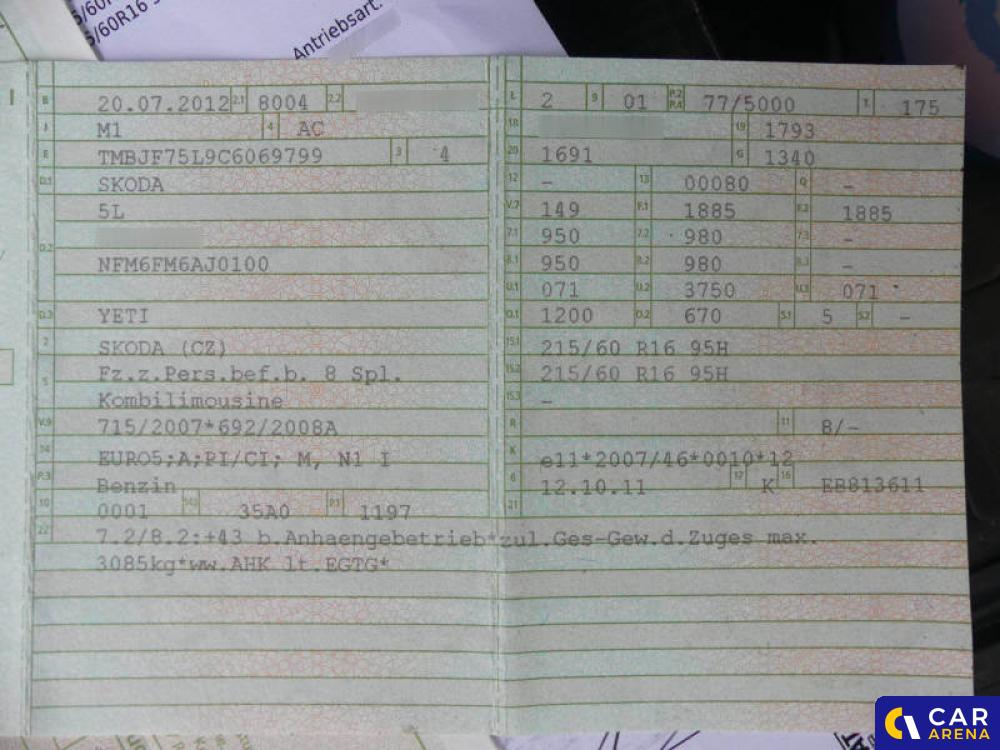 5/60R16
Antriebsart:
B 20.07.2012 2.1 8004 2.2
J M1 4 AC
E TMBJF75L9C6069799 3 4
D.1 SKODA
5L
D.2
NFM6FM6AJ0100
D.3 YETI
2 SKODA (CZ)
5 Fz.z.Pers.bef.b. 8 Spl.
Kombilimousine
V.9 715/2007*692/2008A
14 EURO5;A;PI/CI; M, N1 I
P.3 Benzin
10 0001 14.1 35A0 P.1 1197
L 2 9 01 P.2 P.4 77/5000 T 175
18 19 1793
20 1691 G 1340
12 - 13 00080 Q -
V.7 149 F.1 1885 F.2 1885
7.1 950 7.2 980 7.3 -
8.1 950 8.2 980 8.3 -
U.1 071 U.2 3750 U.3 071
O.1 1200 O.2 670 S.1 5 S.2 -
15.1 215/60 R16 95H
15.2 215/60 R16 95H
15.3 -
R 11 8/-
K e11*2007/46*0010*12
6 12.10.11 17 K 16 EB813611
21
22 7.2/8.2:+43 b.Anhaengebetrieb*zul.Ges-Gew.d.Zuges max.
3085kg*ww.AHK lt.EGTG*
CAR
ARENA